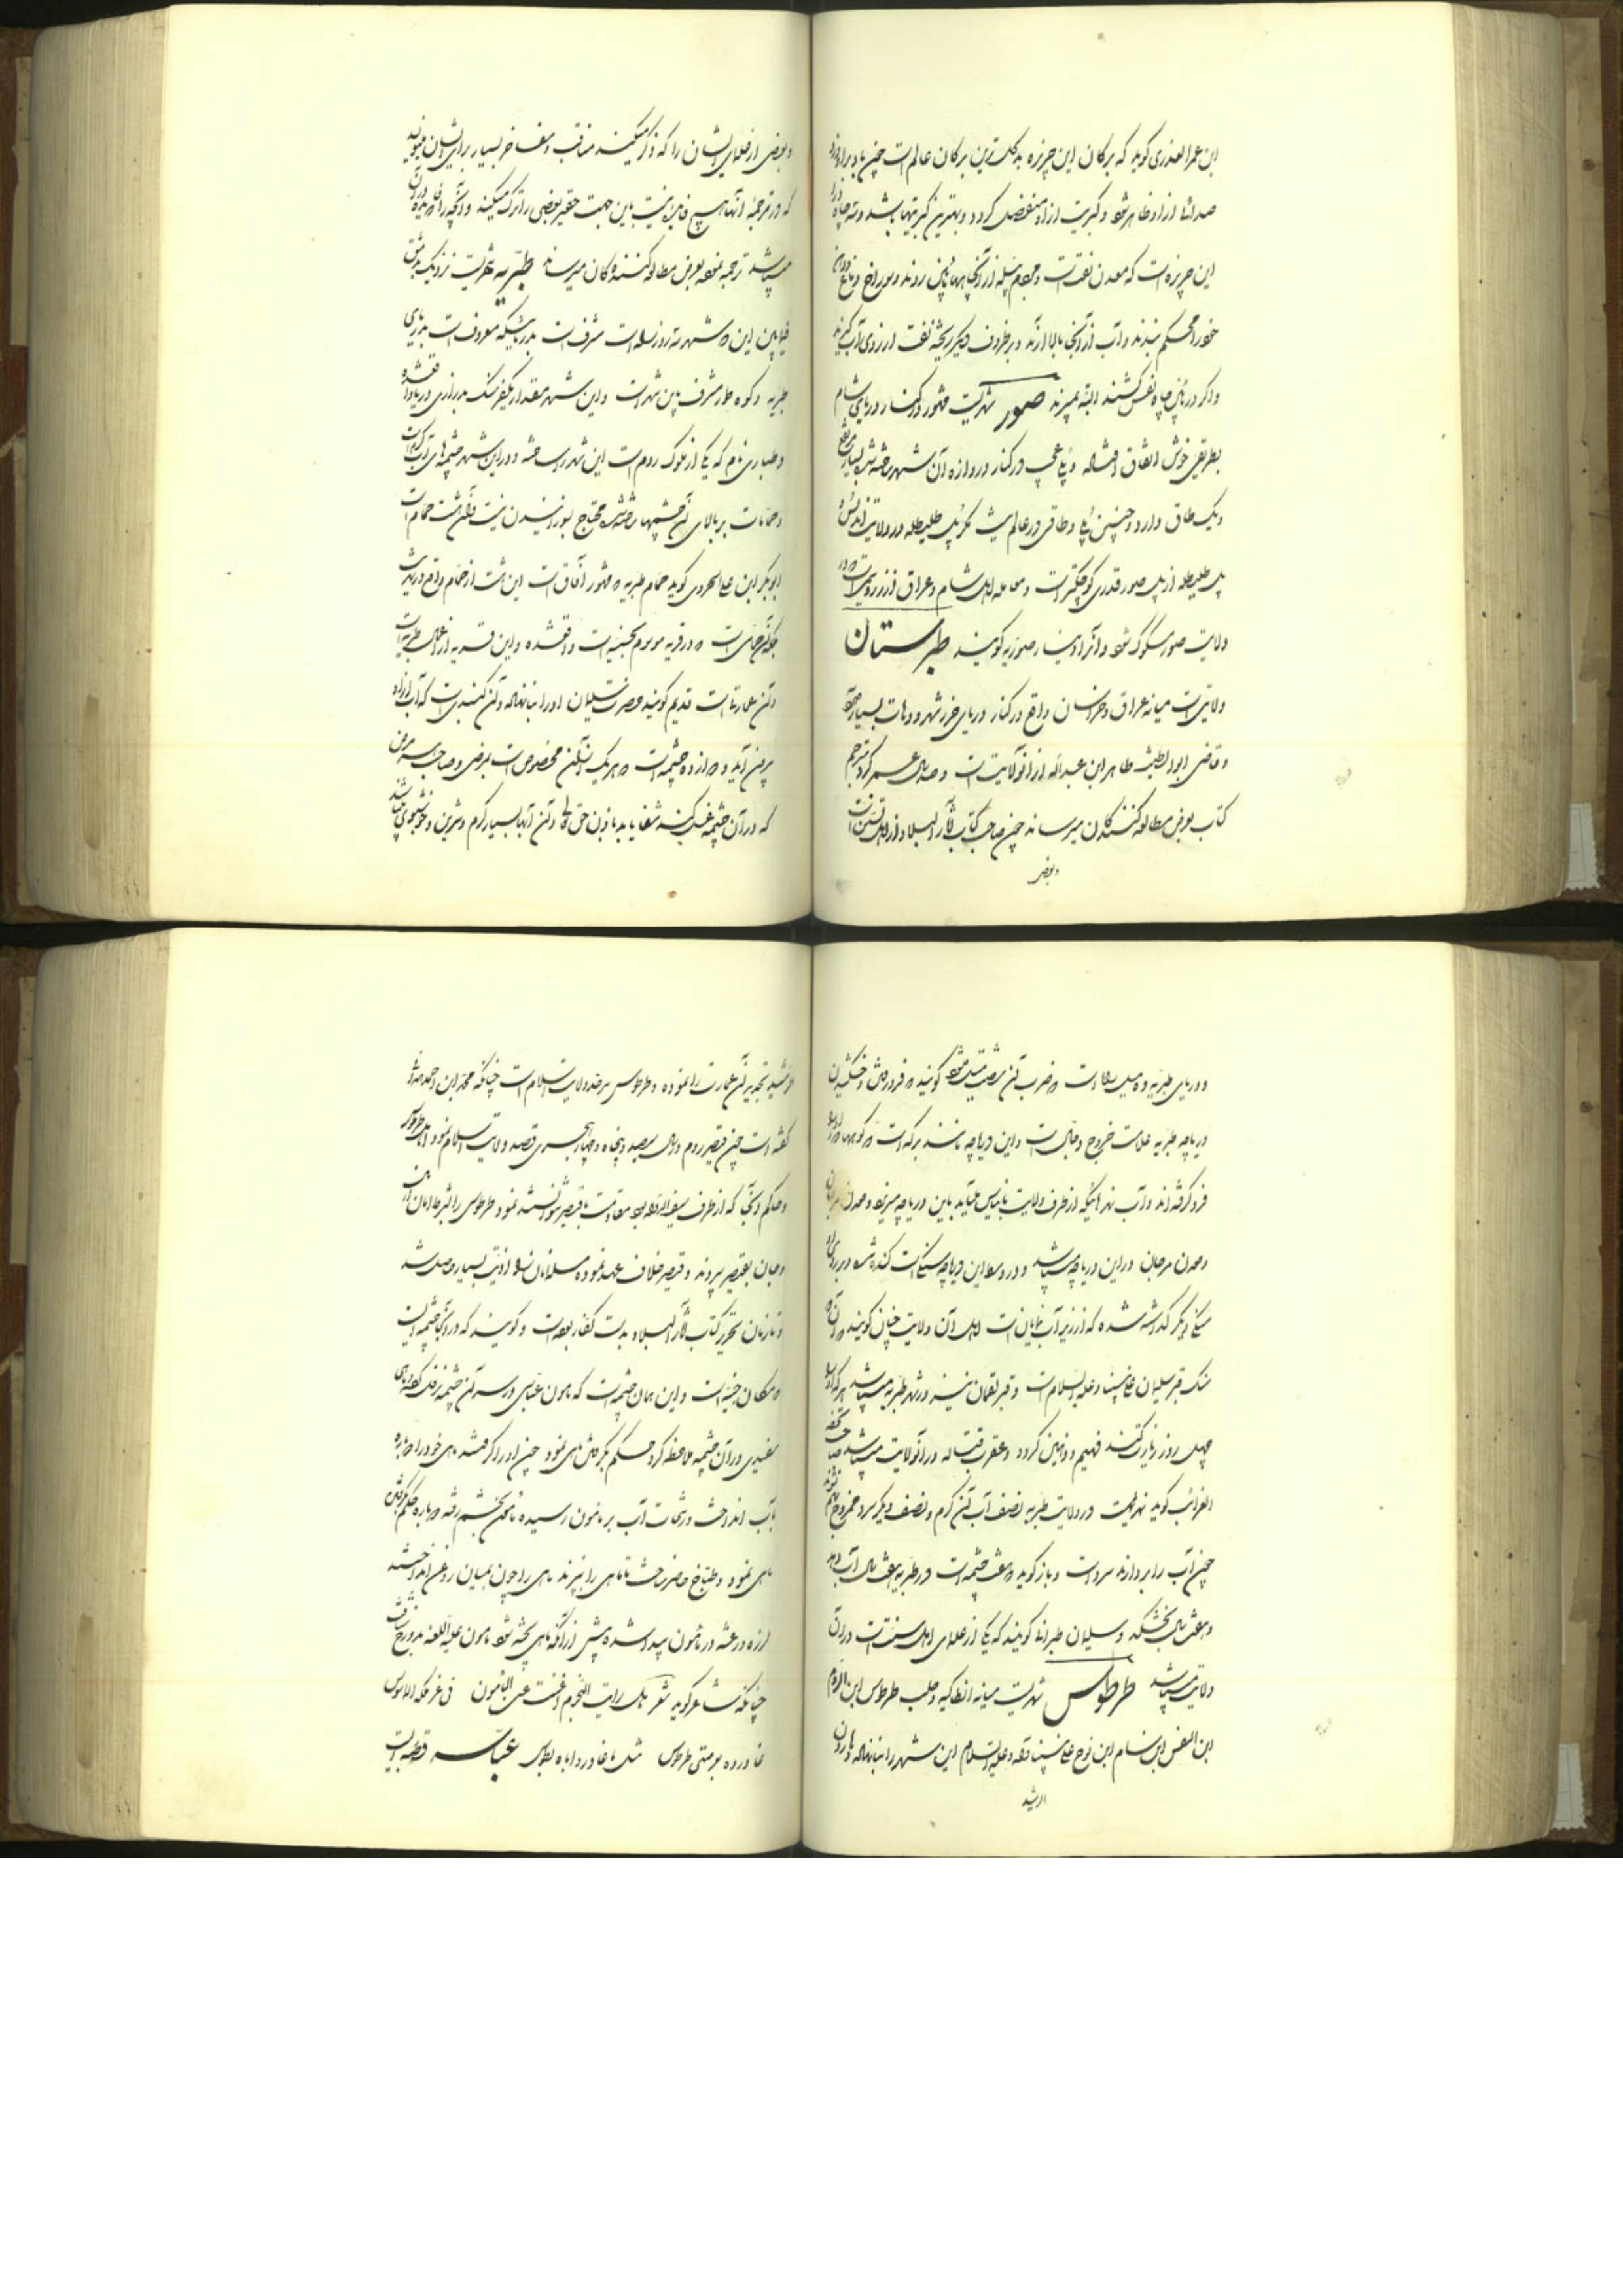 ابن عمر العذری کوید که برکان این جزیره بد کلترین برکان عالم است چون باد برابر
صداها از او ظاهر شود و کبریت از او منفصل کردد و بهترین کبریتها باشد و سه چاه در
این جزیره است که معدن نفت است و مردم پله از آنجا بپایین روند و سوراخ دماغ
خود را محکم ببندند و آب از آنجا بالا آرند و بر ظروف دیگر ریخته نفت از روی آب کیرند
و اکر در پایین چاه نفس کشند البته بمیرند صور شهریست مشهور در کنار دریای شام
بطریقی خوش اتفاق افتاده و پلی عجب در کنار دروازه آن شهر ساخته شده بسیار مرتفع
و یک طاق دارد و چنین پلی و طاقی در عالم نیست مکر پل طلیطله در ولایت اندلس و
پل طلیطله از پل صور قدری کوچکتر است و معامله اهل شام و عراق از زر و سیم است
ولایت صور مسکوک شود و آنرا دینار صوریه کویند طبرستان
ولایتی است میانه عراق و خراسان واقع در کنار دریای خزر شهر و دهات بسیار
و قاضی ابو الطیب طاهر ابن عبدالله از آنولایت است و صد سال عمر کرد مترجم
کتاب بعرض مطالعه کنندکان میرساند چون صاحب کتاب آثار البلاد از اهل تسنن است
و بعضی
و بعضی از علمای ایشان را که ذکر میکند مناقب و مفاخر بسیار برای ایشان میکوید
که در ترجمه آنها هیچ فایده نیست باین جهت حقیر بعضی را ترک میکند و آنچه را فایده در آن
میباشد ترجمه نموده بعرض مطالعه کنندکان میرساند طبریه شهریست نزدیک بدمشق
فیمابین این دو شهر سه روز راه است مشرف است بدریاچه که معروف است بدریای
طبریه و کوه طور مشرف باین شهر است و این شهر بمقدار یکفرسنک بدرازی دریا واقع شده
و طباری نام که یکی از ملوک روم است این شهر را ساخته و در این شهر چشمه های آب کرم است
و حمامات بر بالای آن چشمها ساخته شده محتاج بسوزانیدن نیست و آن هشت حمام است
ابو بکر ابن علی هروی کوید حمام طبریه که مشهور آفاق است این نیست از حمام واقع در طبریه
بلکه آن حمامی است که در قریه موسوم بحسینیه است واقع شده و این قریه از اعمال طبریه است
و آن عمارتی است قدیم کویند حضرت سلیمان او را بنا نهاده و آن کنبدی است که آب از او
بیرون آید و دوازده چشمه است که هر یک از آن مخصوص است بمرضی و صاحب هر مرض
که در آن چشمه غسل کند شفا یابد باذن حق تعالی و آن آبها بسیار کرم و شیرین و خوشبوی میباشد
و دریای طبریه ده میل راه است که ضرب آن شصت میل شود کویند که فرو رفتن و خشکیدن
دریاچه طبریه علامت خروج دجال است و این دریاچه مانند برکه است که کوهها دور او را
فرو کرفته اند و آب نهرهائیکه از طرف ولایت بانیاس میآید باین دریاچه میریزد و معدن
و معدن مرجان در این دریاچه میباشد و در وسط این دریاچه سنکی است کنده شده و بر روی او
سنکی دیگر کذاشته شده که از زیر آب نمایان است اهل آن ولایت چنان کویند که آن
سنک قبر سلیمان علی نبینا و علیه السلام است و قبر لقمان نیز در شهر طبریه میباشد هر که او را
چهل روز زیارت کند فهیم و ذهین کردد و عقرب قتاله در آنولایت میباشد صاحب تحفه
الغرائب کوید نهریست در ولایت طبریه نصف آب آن کرم و نصف دیگر سرد ممزوج بهم نشوند
چون آب را بردارند سرد است و باز کوید هفت چشمه است در طبریه هفت سال آب دهد
و هفت سال بخشکد و سلیمان طبرانی کویند که یکی از علمای اهل سنت است در آن
ولایت میباشد طرطوس شهریست میانه انطاکیه و حلب طرطوس ابن الروم
ابن الیفن ابن سام ابن نوح علی نبینا و آله و علیه السلام این شهر را بنا نهاده و هارون
الرشید
الرشید تجدید آن عمارت را نموده و طرطوس سرحد ولایت اسلام است چنانکه محمد ابن احمد
کفته است چون قیصر روم در سال سیصد و پنجاه و چهار هجری قصد ولایت اسلام نمود اهل طرطوس
و حاکم آنجا که از طرف سیف الدوله بود مقاومت با قیصر نتوانستند نمود طرطوس را بشرط امان
و جان بقیصر سپردند و قیصر خلاف عهد نموده مسلمانان را اذیت بسیار حاصل شد
و تا زمان تحریر کتاب آثار البلاد بدست کفار بوده است و کویند که در آنجا چشمه ایست
در مکان خشبیه است و این همان چشمه است که مامون عباسی در سر آن چشمه نزول کرده ماهی
سفیدی در آن چشمه ملاحظه کرد حکم بکرفتن ماهی نمود چون او را کرفتند ماهی خود را دوباره
بآب انداخت و رشحات آب بر مامون رسیده مامون بخشم رفته دوباره حکم کرفتن
ماهی نمود و طباخ حاضر ساخت تا ماهی را بپزند ماهی را چون بمیان روغن انداختند
لرزه و رعشه در مامون پیدا شده پیش از آنکه ماهی پخته شود مامون علیه اللعنه بدوزخ شتافت
چنانکه شاعر کوید شعر هل رایت النجوم اغنت عن المامون فی عز ملکه الماسوس
غادروه بعرصتی طرطوس مثل ما غادروا اباه بطوس عباسه قصبه ایست